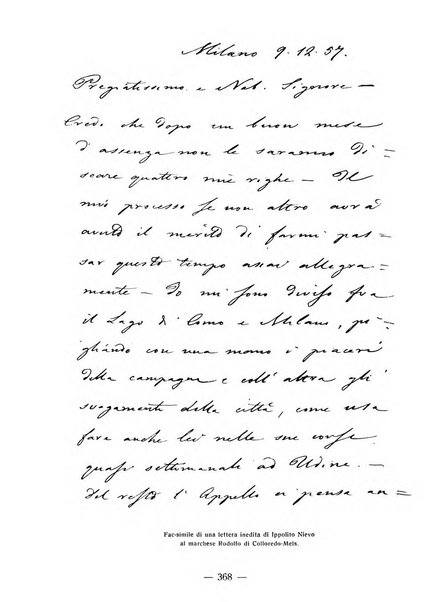 Milano 9.12.57.
Pregiatissimo e Nob. Signore —
Credo che dopo un buon mese
d'assenza non le saranno di=
scare quattro mie righe — Il
mio processo se non altro avrà
avuto il merito di farmi pas=
sar questo tempo assai allegra=
mente — Io mi sono diviso fra
il Lago di Como e Milano, pi=
gliando con una mano i piaceri
della campagna e coll' altra gli
svagamenti della città, come usa
fara anche lei nelle sue corse
quasi settimanali ad Udine. —
Del resto l' Appello ci pensa an=
Fac-simile di una lettera inedita di Ippolito Nievo
al marchese Rodolfo di Colloredo-Mels.
— 368 —